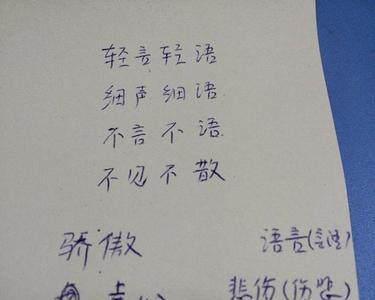 轻言轻语
细声细语
不言不语
不见不散
骄傲 语言(言语)
悲伤(伤